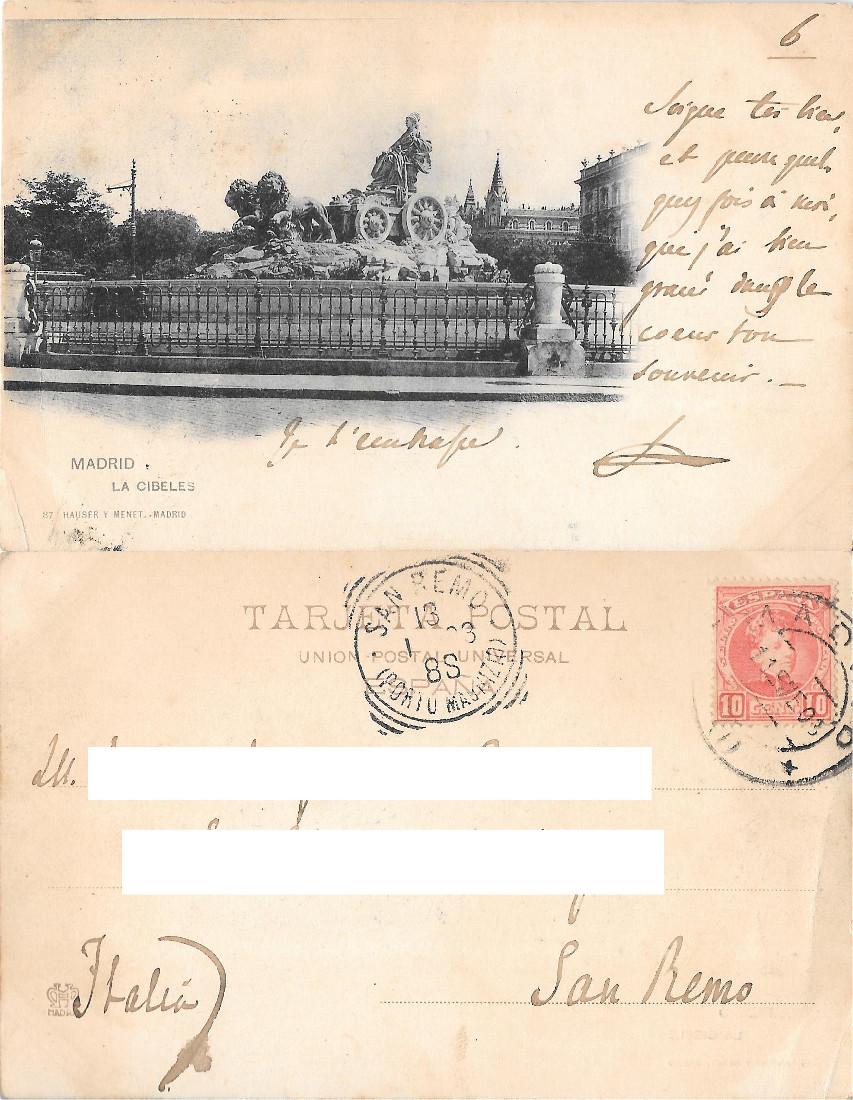 6
Soigne toi bien,
et pense quel
quefois à moi,
que j'ai bien
gravé dans le
coeur ton
souvenir. _
Je t'embrasse.
MADRID.
LA CIBELES
87 HAUSER Y MENET.-MADRID
TARJETA POSTAL
UNION POSTAL UNIVERSAL
ESPAÑA
SAN REMO
13
8S
(PORTO MAURIZIO)
10 10
MADRID
Italia
San Remo
MADRID